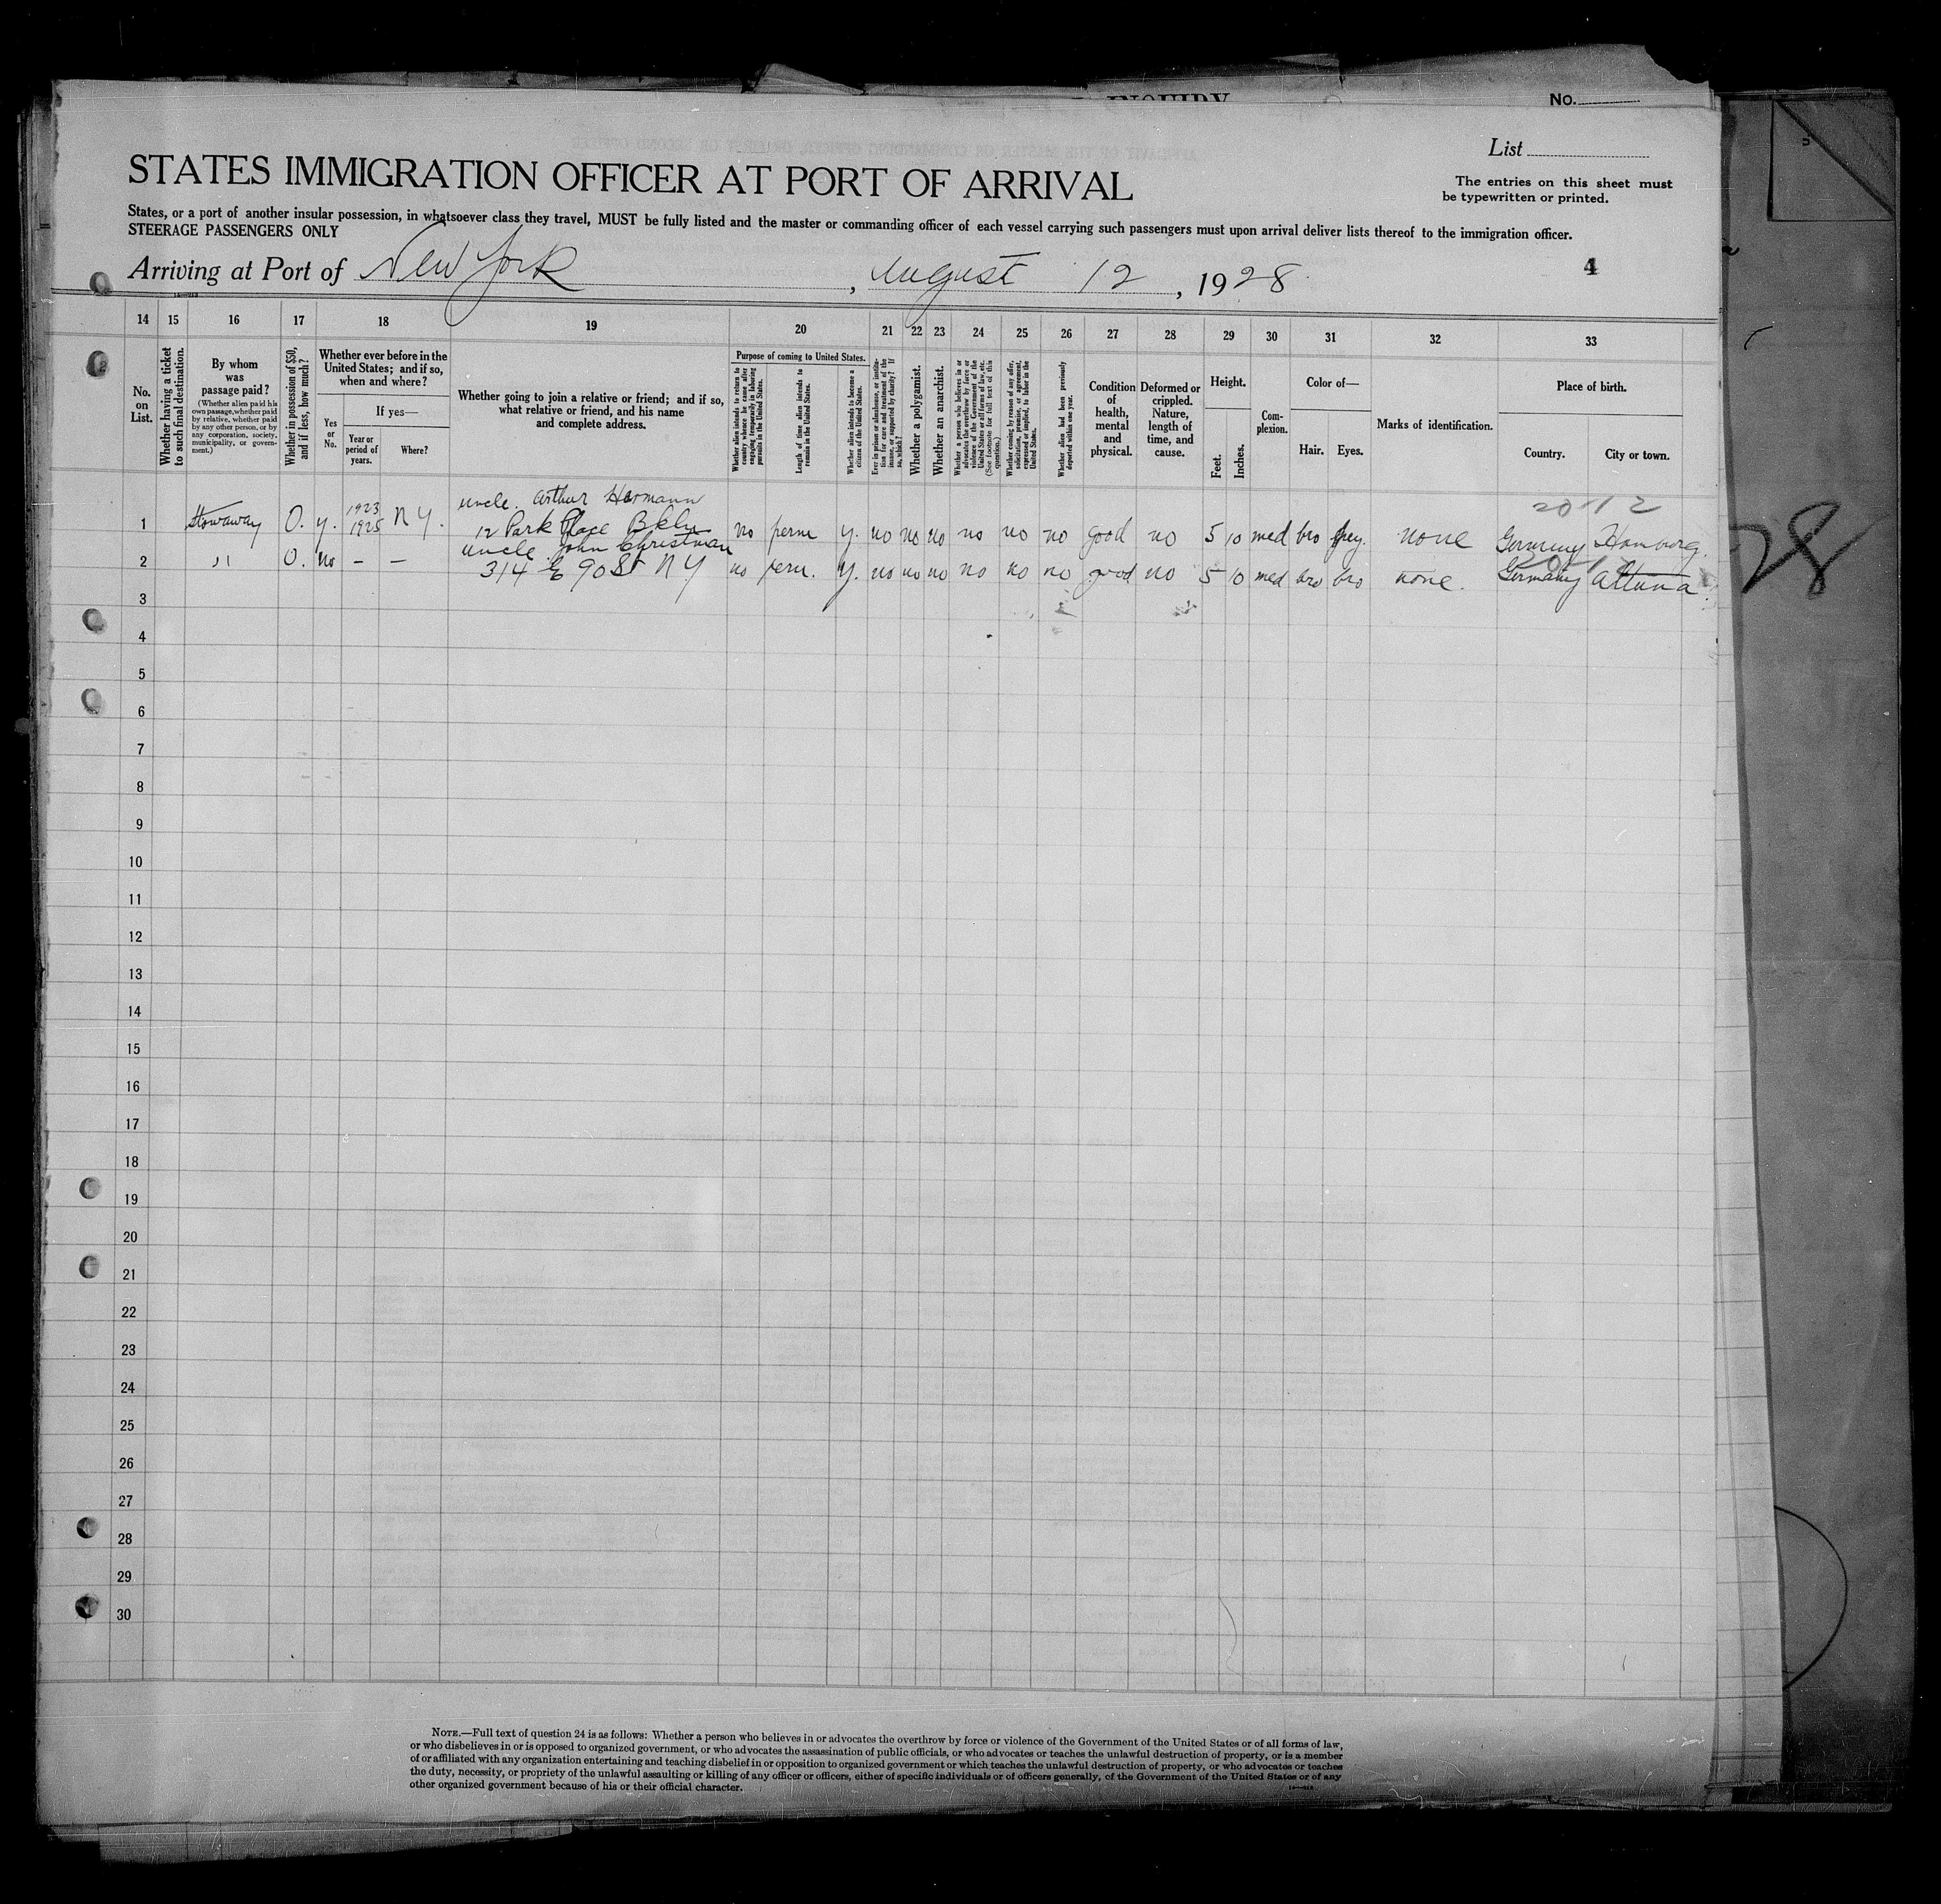 INQUIRY
No.
List
STATES IMMIGRATION OFFICER AT PORT OF ARRIVAL
The entries on this sheet must
be typewritten or printed.
States, or a port of another insular possession, in whatsoever class they travel, MUST be fully listed and the master or commanding officer of each vessel carrying such passengers must upon arrival deliver lists thereof to the immigration officer.
STEERAGE PASSENGERS ONLY
Arriving at Port of New York, August 12, 1928
4
14 15 16 17 18 19 20 21 22 23 24 25 26 27 28 29 30 31 32 33
No. on List.
Whether having a ticket to such final destination.
By whom was passage paid?
(Whether alien paid his own passage, whether paid by relative, whether paid by any other person, or by any corporation, society, municipality, or government.)
Whether in possession of $50, and if less, how much?
Whether ever before in the United States; and if so, when and where?
Yes or No.
If yes—
Year or period of years.
Where?
Whether going to join a relative or friend; and if so, what relative or friend, and his name and complete address.
Purpose of coming to United States.
Whether alien intends to return to country whence he came after engaging temporarily in laboring pursuits in the United States.
Length of time alien intends to remain in the United States.
Whether alien intends to become a citizen of the United States.
Ever in prison or almshouse, or institution for care and treatment of the insane, or supported by charity? If so, which?
Whether a polygamist.
Whether an anarchist.
Whether a person who believes in or advocates the overthrow by force or violence of the Government of the United States or all forms of law, etc. (See footnote for full text of this question.)
Whether coming by reason of any offer, solicitation, promise, or agreement, expressed or implied, to labor in the United States.
Whether alien had been previously deported within one year.
Condition of health, mental and physical.
Deformed or crippled. Nature, length of time, and cause.
Height.
Feet. Inches.
Complexion.
Color of—
Hair. Eyes.
Marks of identification.
Place of birth.
Country. City or town.
20 12
uncle. Arthur Hermann
1 Stowaway 0. y. 1923 1925 N Y. 12 Park Place Bkln no perm y. no no no no no no good no 5 10 med bro grey. none Germany Hamburg.
uncle. John Christman
2 " 0. no – – 314 E 90 St N Y no perm. y. no no no no no no good no 5 10 med bro bro none. Germany Altona.
28
3
4
5
6
7
8
9
10
11
12
13
14
15
16
17
18
19
20
21
22
23
24
25
26
27
28
29
30
NOTE.—Full text of question 24 is as follows: Whether a person who believes in or advocates the overthrow by force or violence of the Government of the United States or of all forms of law,
or who disbelieves in or is opposed to organized government, or who advocates the assassination of public officials, or who advocates or teaches the unlawful destruction of property, or is a member
of or affiliated with any organization entertaining and teaching disbelief in or opposition to organized government or which teaches the unlawful destruction of property, or who advocates or teaches
the duty, necessity, or propriety of the unlawful assaulting or killing of any officer or officers, either of specific individuals or of officers generally, of the Government of the United States or of any
other organized government because of his or their official character.